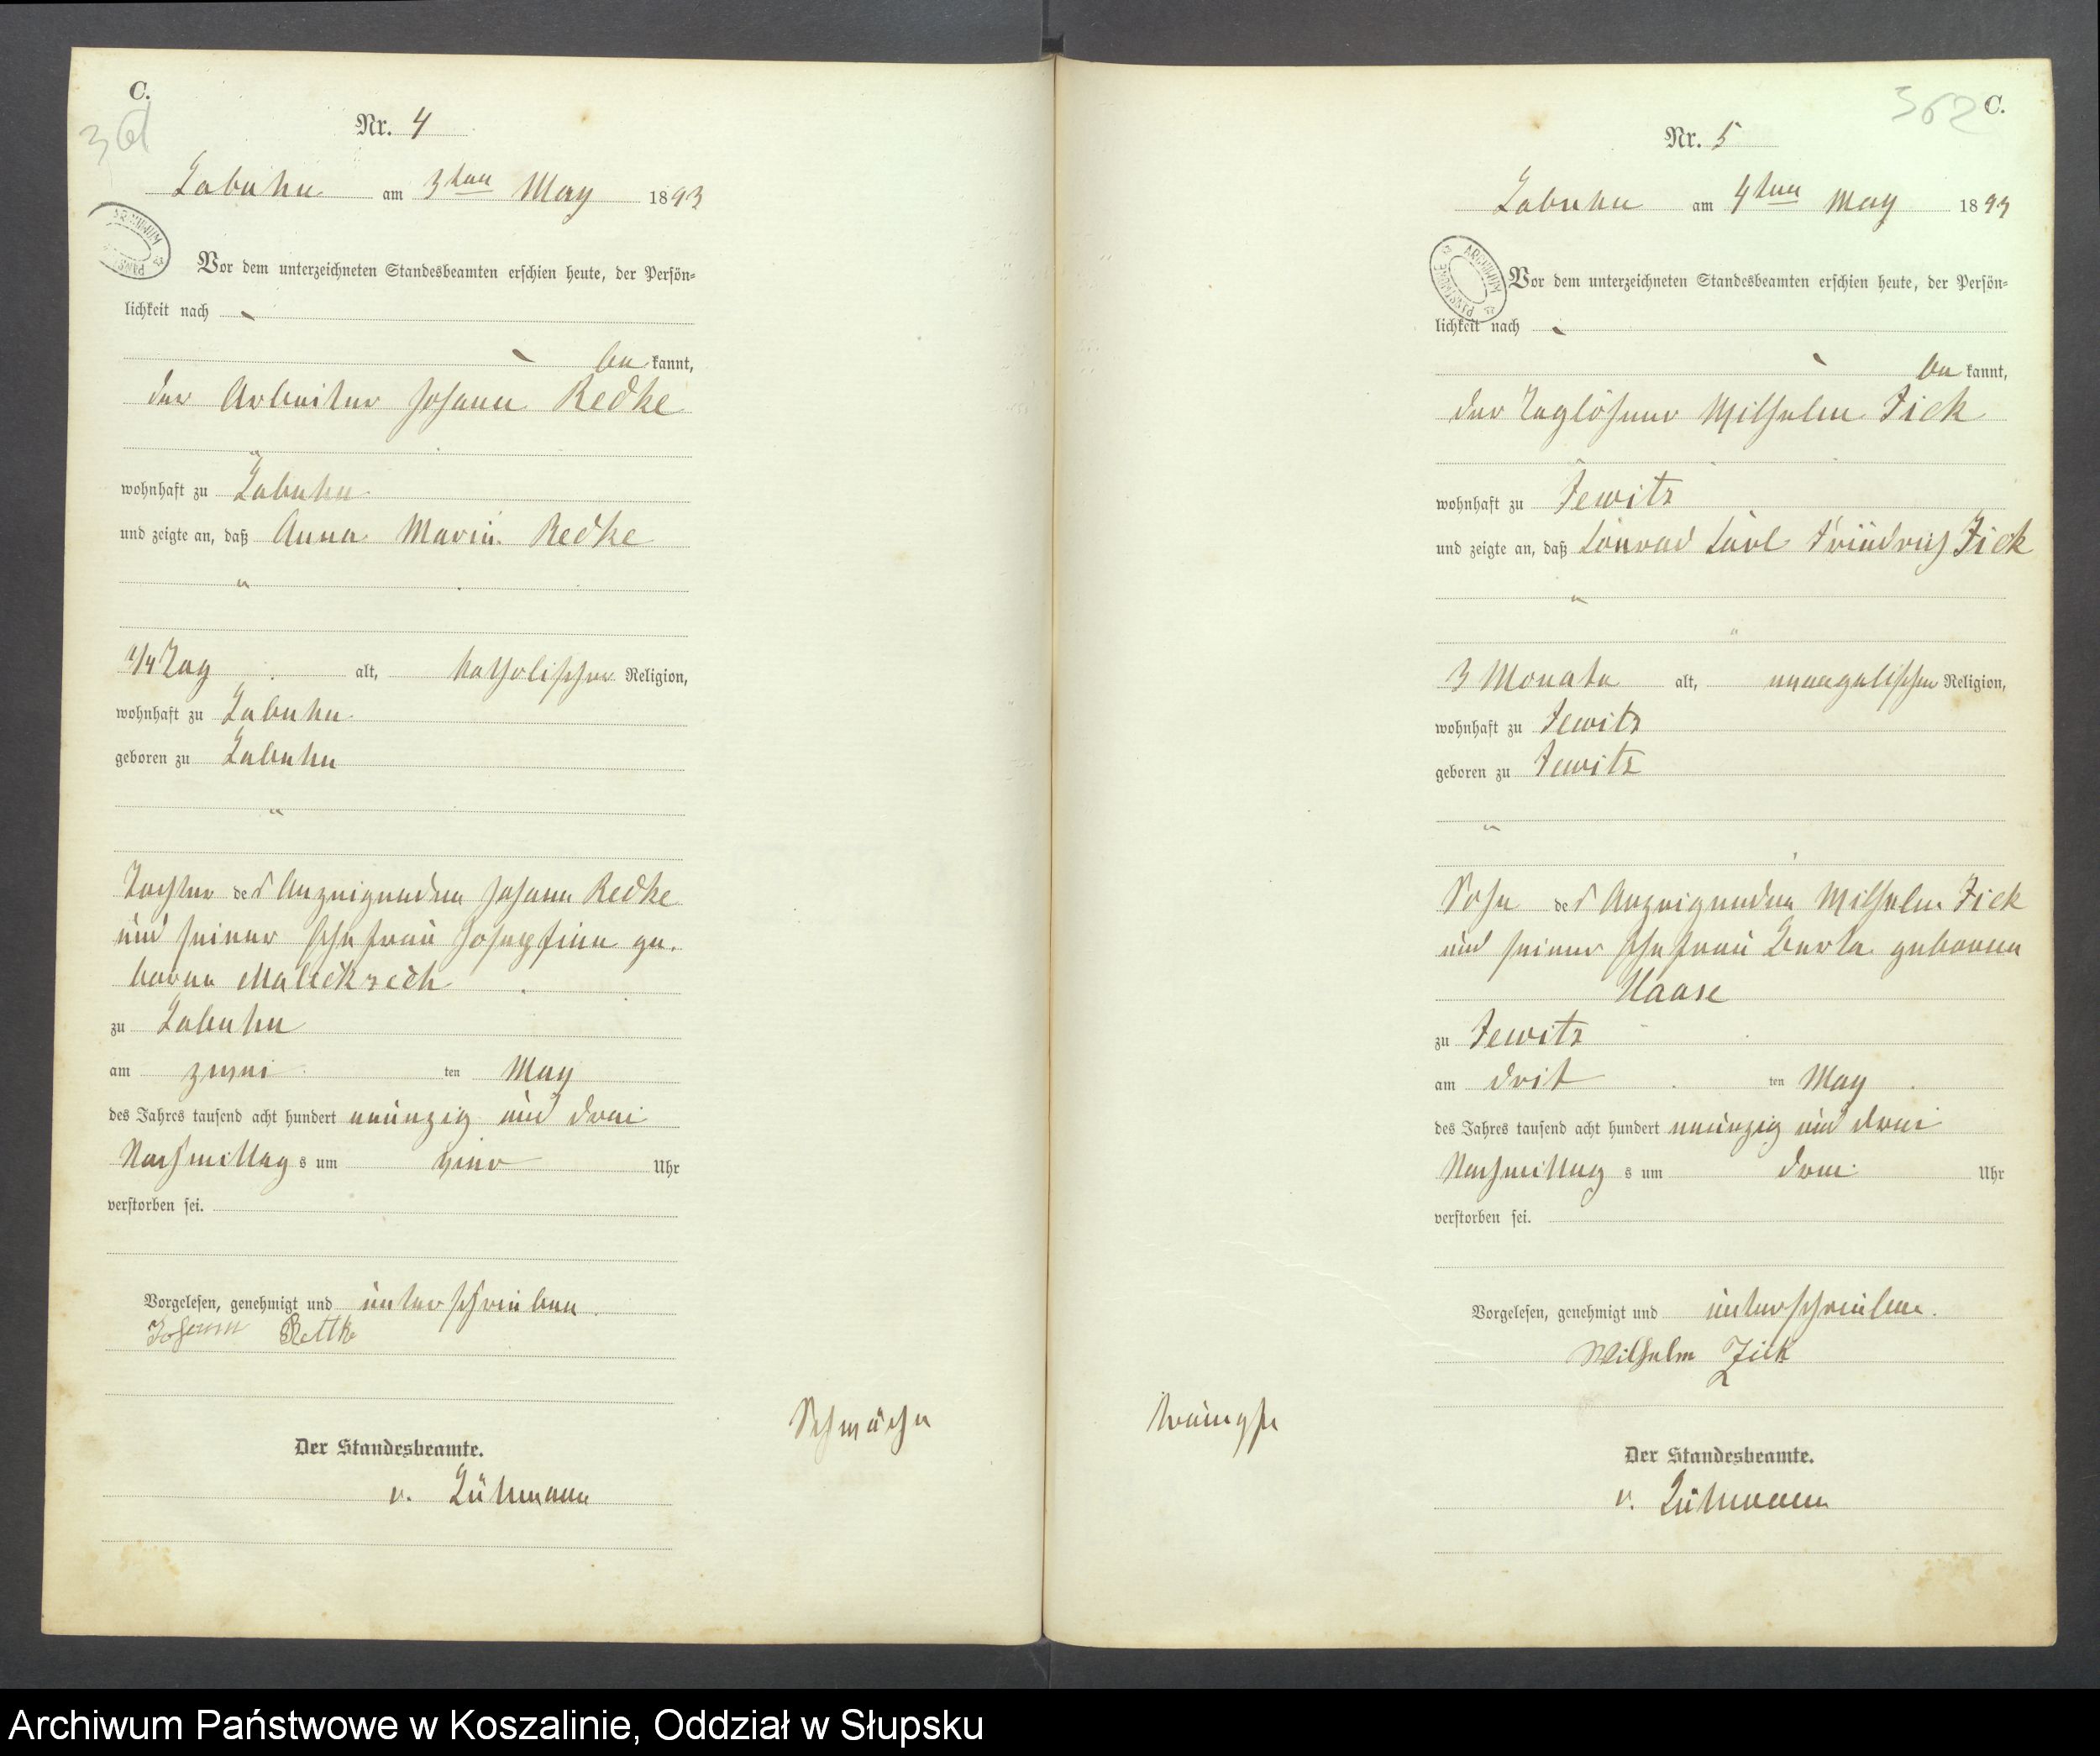 C.
361
Nr. 4
Labuhn am 3ten May 1893
ARCHIWUM
Vor dem unterzeichneten Standesbeamten erschien heute, der Persön=
lichkeit nach
be kannt,
der Arbeiter Johann Redke
wohnhaft zu Labuhn
und zeigte an, daß Anna Marie Redke
1/4 Tag alt, katholischer Religion,
wohnhaft zu Labuhn
geboren zu Labuhn
Tochter des Anzeigenden Johann Redke
und seiner Ehefrau Josephine ge.
borne
zu Labuhn
am zwei ten May
des Jahres tausend acht hundert neunzig und drei
Nachmittags um vier Uhr
verstorben sei.
Vorgelesen, genehmigt und unterschrieben.
Johann Rettke
Der Standesbeamte.
v. Lühmann
Schwäche
362
C.
Nr. 5
Labuhn am 4ten May 1893
ARCHIWUM PAŃSTWOWE
Vor dem unterzeichneten Standesbeamten erschien heute, der Persön=
lichkeit nach
be kannt,
der Taglöhner Wilhelm Fick
wohnhaft zu Jewitz
und zeigte an, daß Conrad Carl Friedrich Fick
3 Monate alt, evangelischer Religion,
wohnhaft zu Jewitz
geboren zu Jewitz
Sohn des Anzeigenden Wilhelm Fick
und seiner Ehefrau Berta geborenen
Haase
zu Jewitz
am drit ten May
des Jahres tausend acht hundert neunzig und drei
Nachmittags um drei Uhr
verstorben sei.
Vorgelesen, genehmigt und unterschrieben.
Wilhelm Fick
Krämpfe
Der Standesbeamte.
v. Lühmann
Archiwum Państwowe w Koszalinie, Oddział w Słupsku